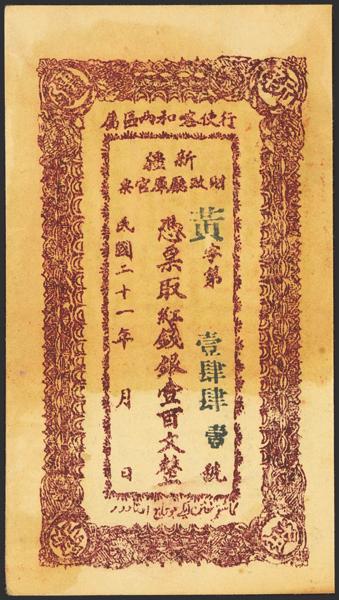 行使喀和两區屬
新疆
財政廳庫官票
黃字第壹肆肆壹號
憑票取紅錢銀壹百文整
民國二十一年 月 日